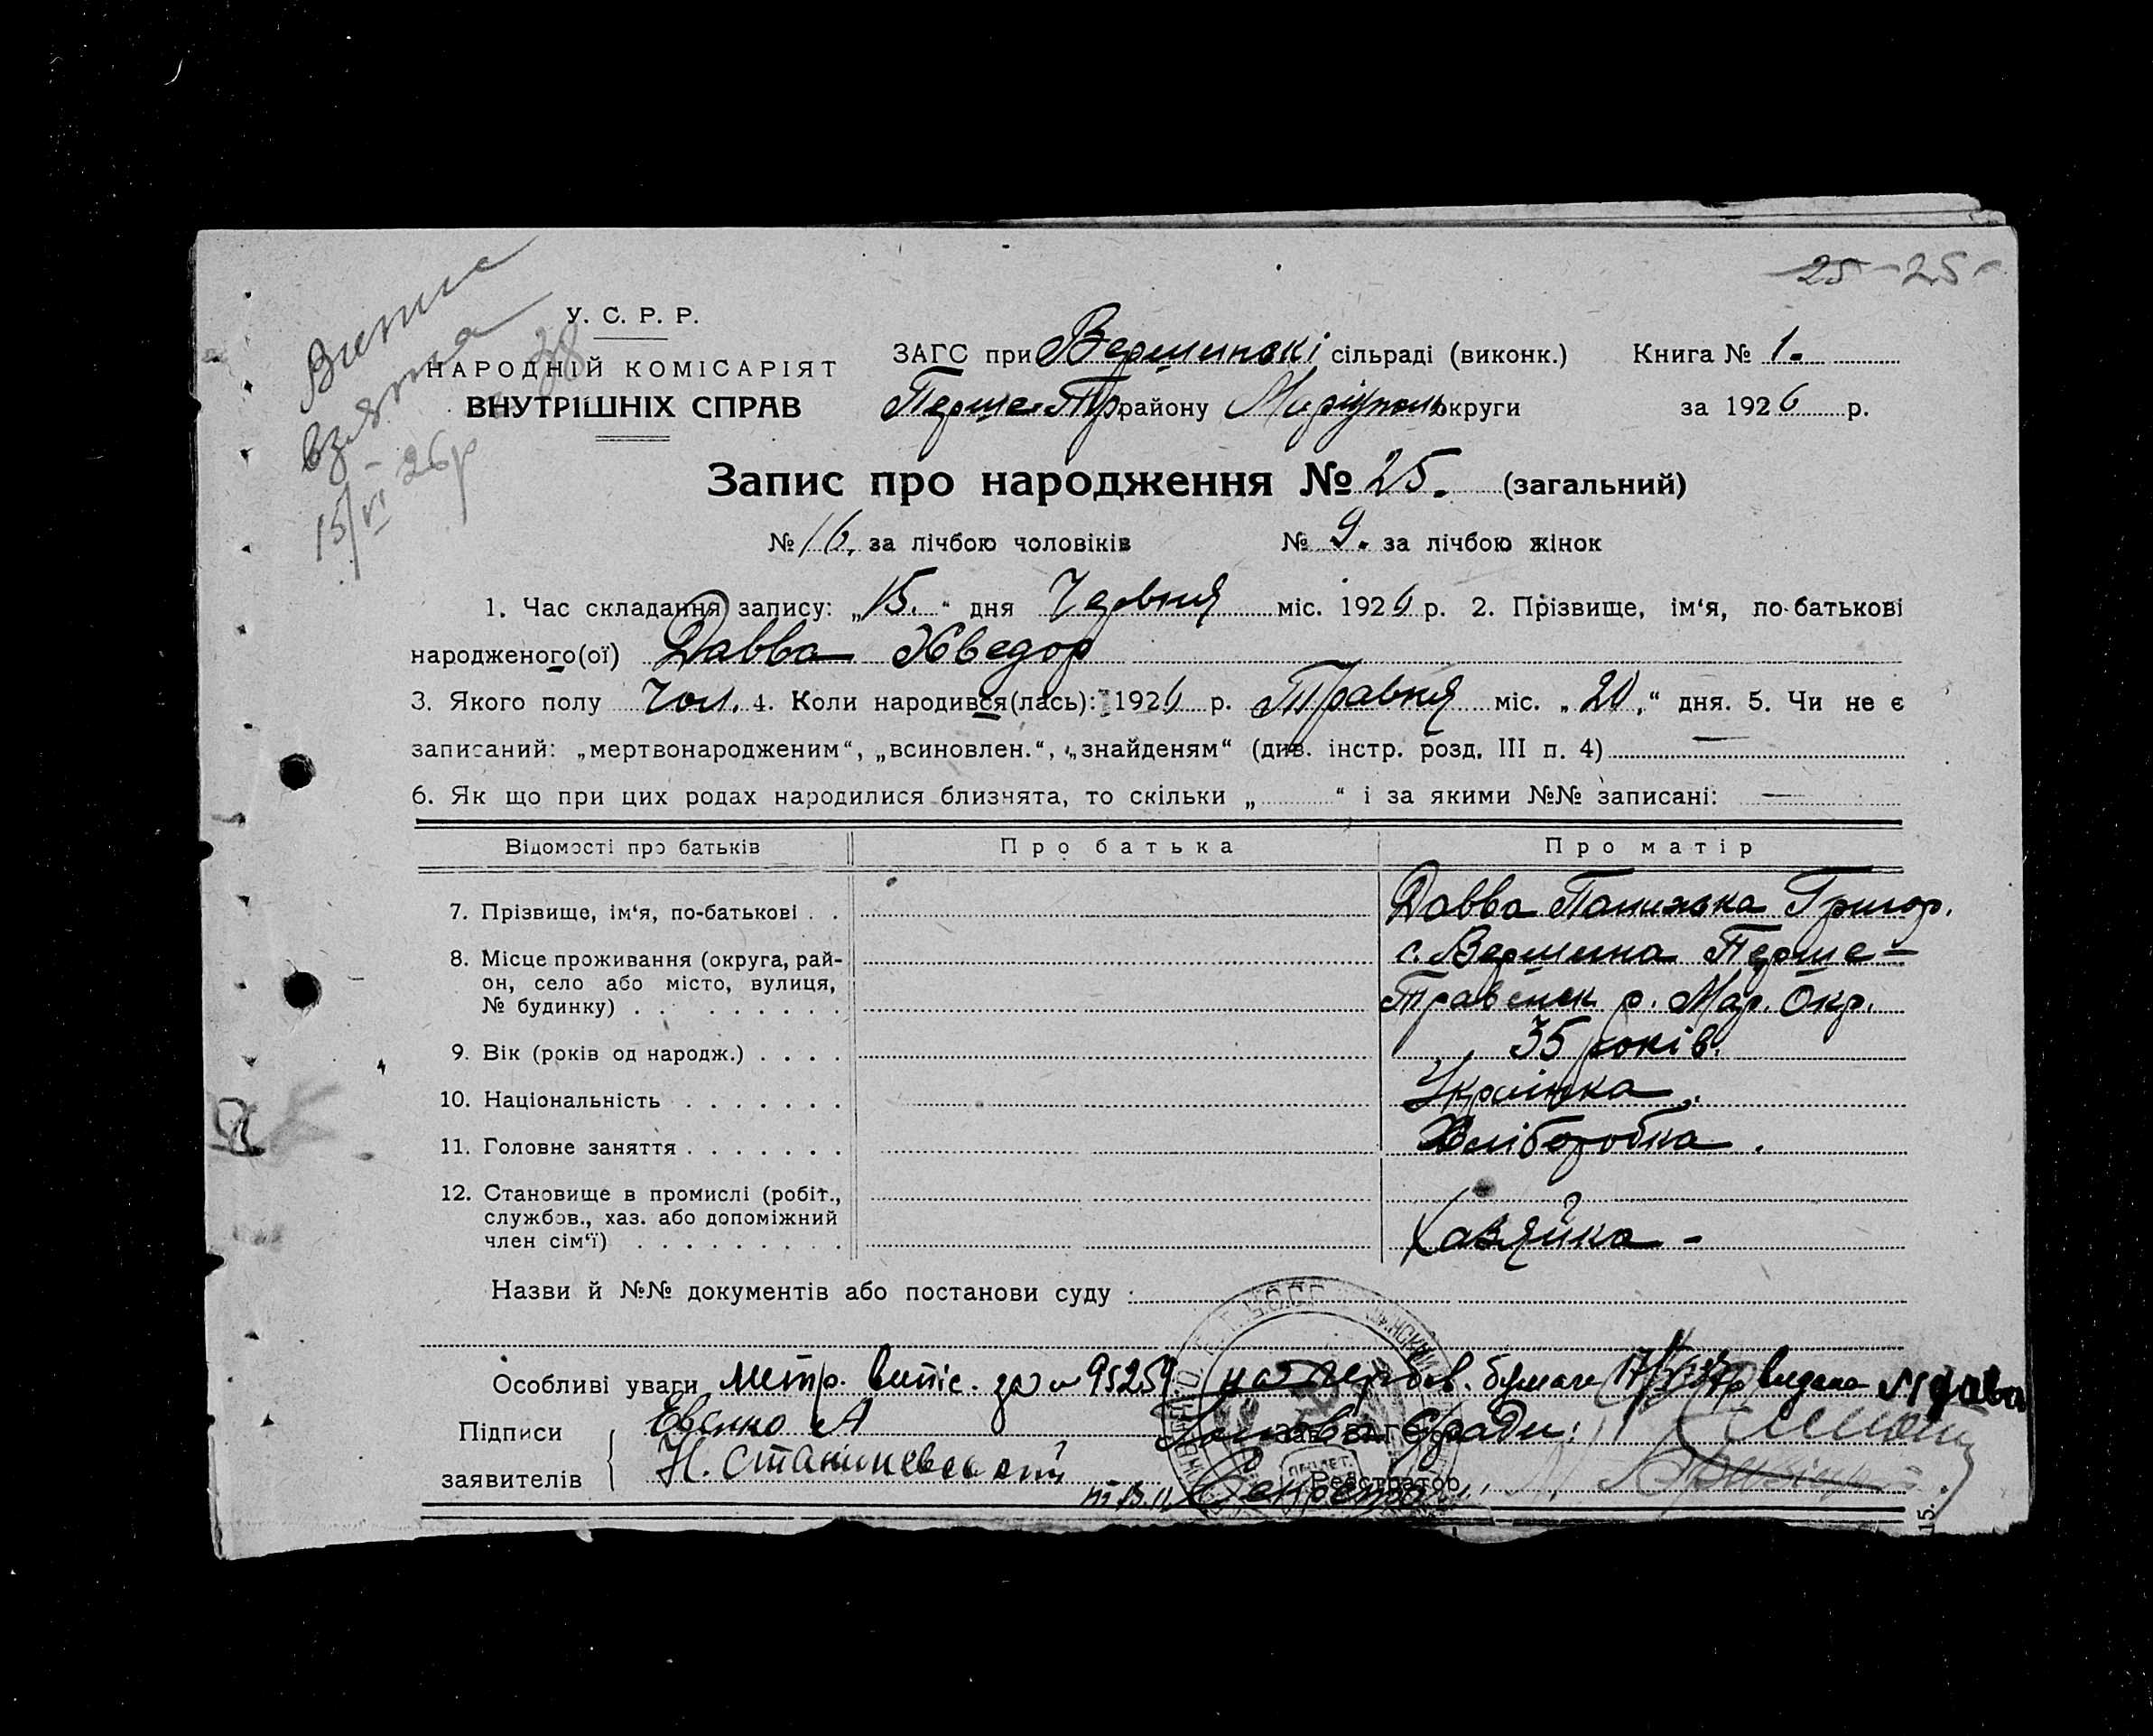 25 - 25 -
Випис
взята
15/VI - 26р
38
У. С. Р. Р.
НАРОДНІЙ КОМІСАРІЯТ
ВНУТРІШНІХ СПРАВ
ЗАГС при Вершинскі сільраді (виконк.) Книга № 1.
Перше-Тр району Маріюполь округи за 1926 р.
Запис про народження № 25. (загальний)
№ 16. за лічбою чоловіків № 9. за лічбою жінок
1. Час складання запису: „15.“ дня Червня міс. 1926 р. 2. Прізвище, ім‘я, по-батькові
народженого(ої) Давва Хведор
3. Якого полу Чол. 4. Коли народився(лась): 1926 р. Травня міс. „20,“ дня. 5. Чи не є
записаний: „мертвонародженим“, „всиновлен.“, „знайденям“ (див. інстр. розд. III п. 4) —
6. Як що при цих родах народилися близнята, то скільки „ “ і за якими №№ записані: —
Відомості про батьків Про батька Про матір
7. Прізвище, ім‘я, по-батькові . . Давва Григор.
8. Місце проживання (округа, рай- с. Вершина Перше-
он, село або місто, вулиця, Травенск р. Мар. Окр.
№ будинку) . . . . . . . .
9. Вік (років од народж.) . . . . 35 років.
10. Національність . . . . . . . Українка.
11. Головне заняття . . . . . . . Хліборобка.
12. Становище в промислі (робіт.,
службов., хаз. або допоміжний Хазяйка -
член сім‘ї) . . . . . . . . .
Назви й №№ документів або постанови суду :
Особливі уваги метр. випіс. за № 95259 бумаги видана
Підписи Евенко А Голова с/ради:
заявителів Н. Реєстратор
Секретар
15.